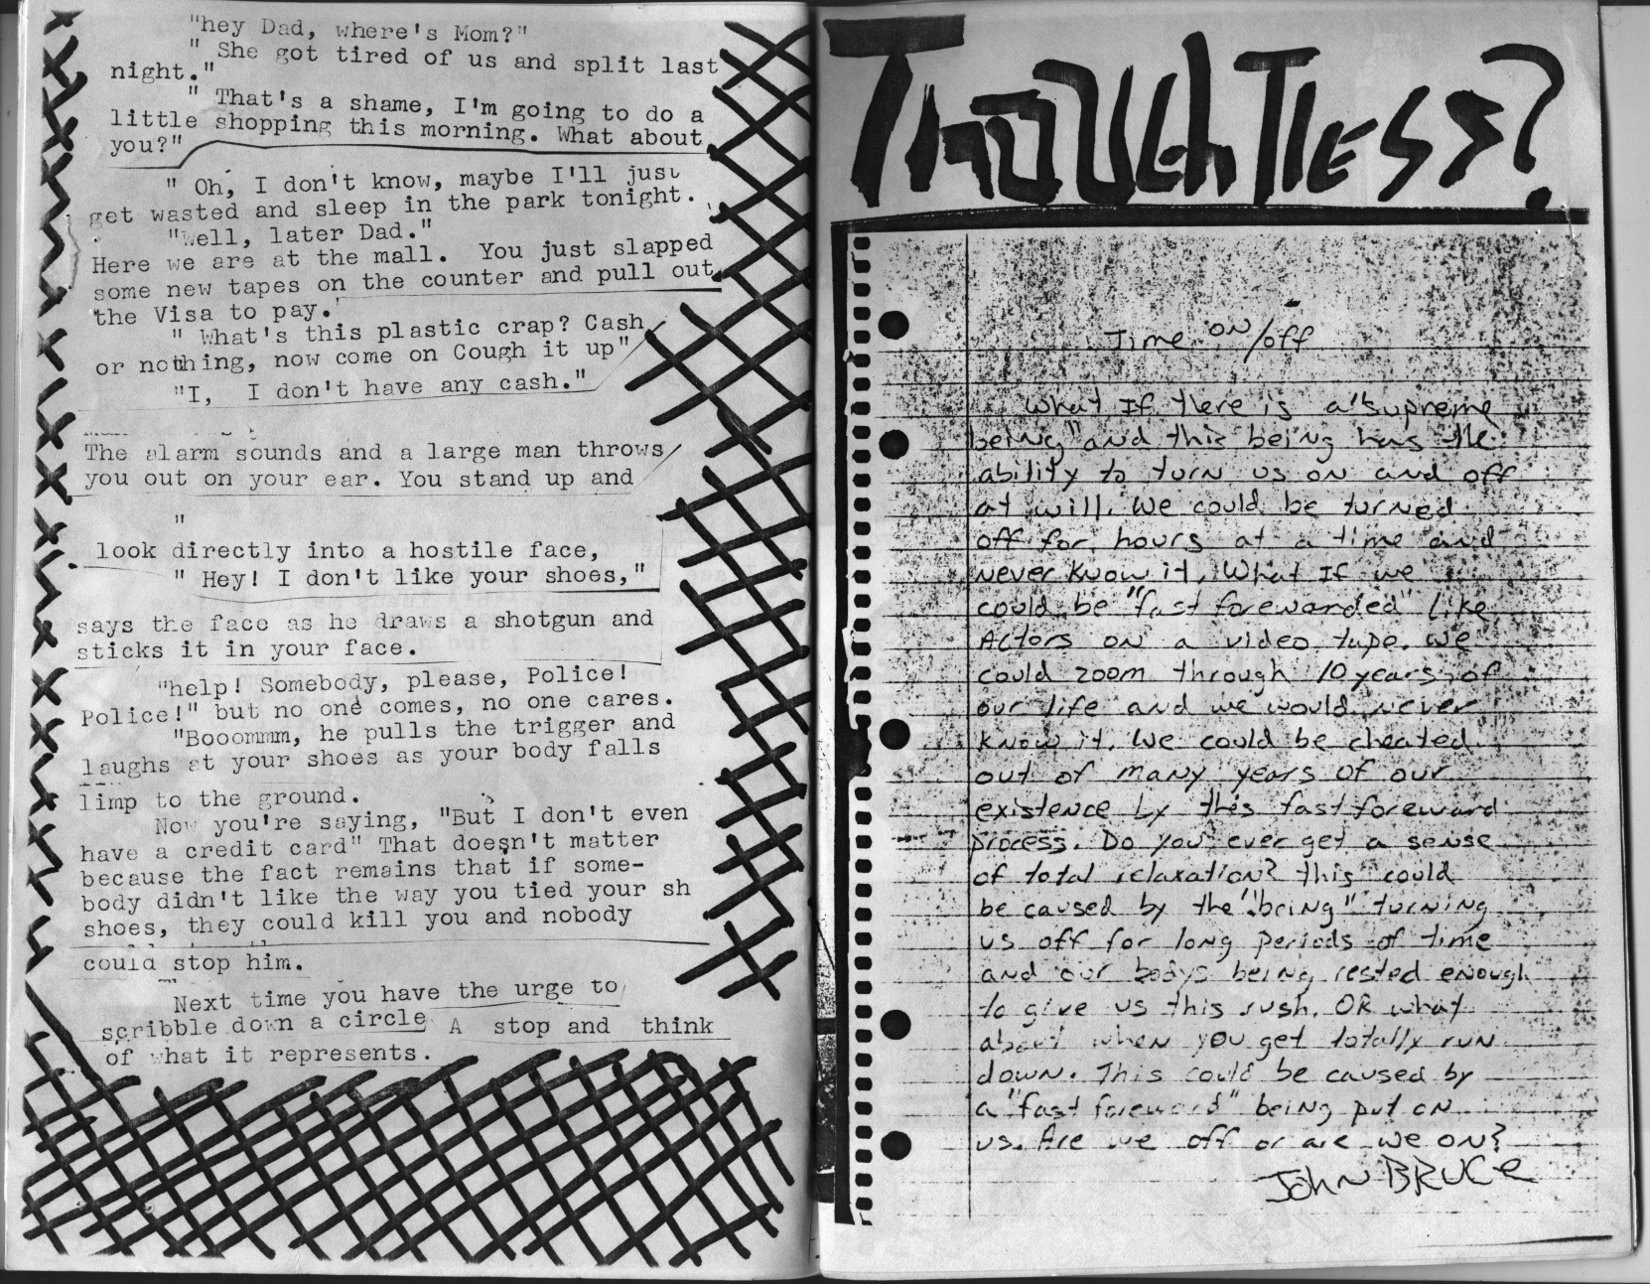 "hey Dad, where's Mom?"
" She got tired of us and split last
night."
" That's a shame, I'm going to do a
little shopping this morning. What about
you?"
" Oh, I don't know, maybe I'll just
get wasted and sleep in the park tonight.
"Well, later Dad."
Here we are at the mall. You just slapped
some new tapes on the counter and pull out
the Visa to pay.
" What's this plastic crap? Cash
or nothing, now come on Cough it up"
"I, I don't have any cash."
The alarm sounds and a large man throws
you out on your ear. You stand up and
"
look directly into a hostile face,
" Hey! I don't like your shoes,"
says the face as he draws a shotgun and
sticks it in your face.
"help! Somebody, please, Police!
Police!" but no one comes, no one cares.
"Booommm, he pulls the trigger and
laughs at your shoes as your body falls
limp to the ground.
Now you're saying, "But I don't even
have a credit card" That doesn't matter
because the fact remains that if some-
body didn't like the way you tied your sh
shoes, they could kill you and nobody
could stop him.
Next time you have the urge to
scribble down a circle A stop and think
of what it represents.
THOUGHTLESS?
Time on/off
What If there is a "supreme
being" and this being has the
ability to turn us on and off
at will. We could be turned
off for hours at a time and
never know it. What If we
could be "fast forewarded" like
Actors on a video tape. We
could zoom through 10 years of
our life and we would never
know it. We could be cheated
out of many years of our
existence by this fast foreward
process. Do you ever get a sense
of total relaxation? this could
be caused by the "being" turning
us off for long periods of time
and our bodys being rested enough
to give us this rush. OR what
about when you get totally run
down. This could be caused by
a "fast foreward" being put on
us. Are we off or are we on?
John BRUCE